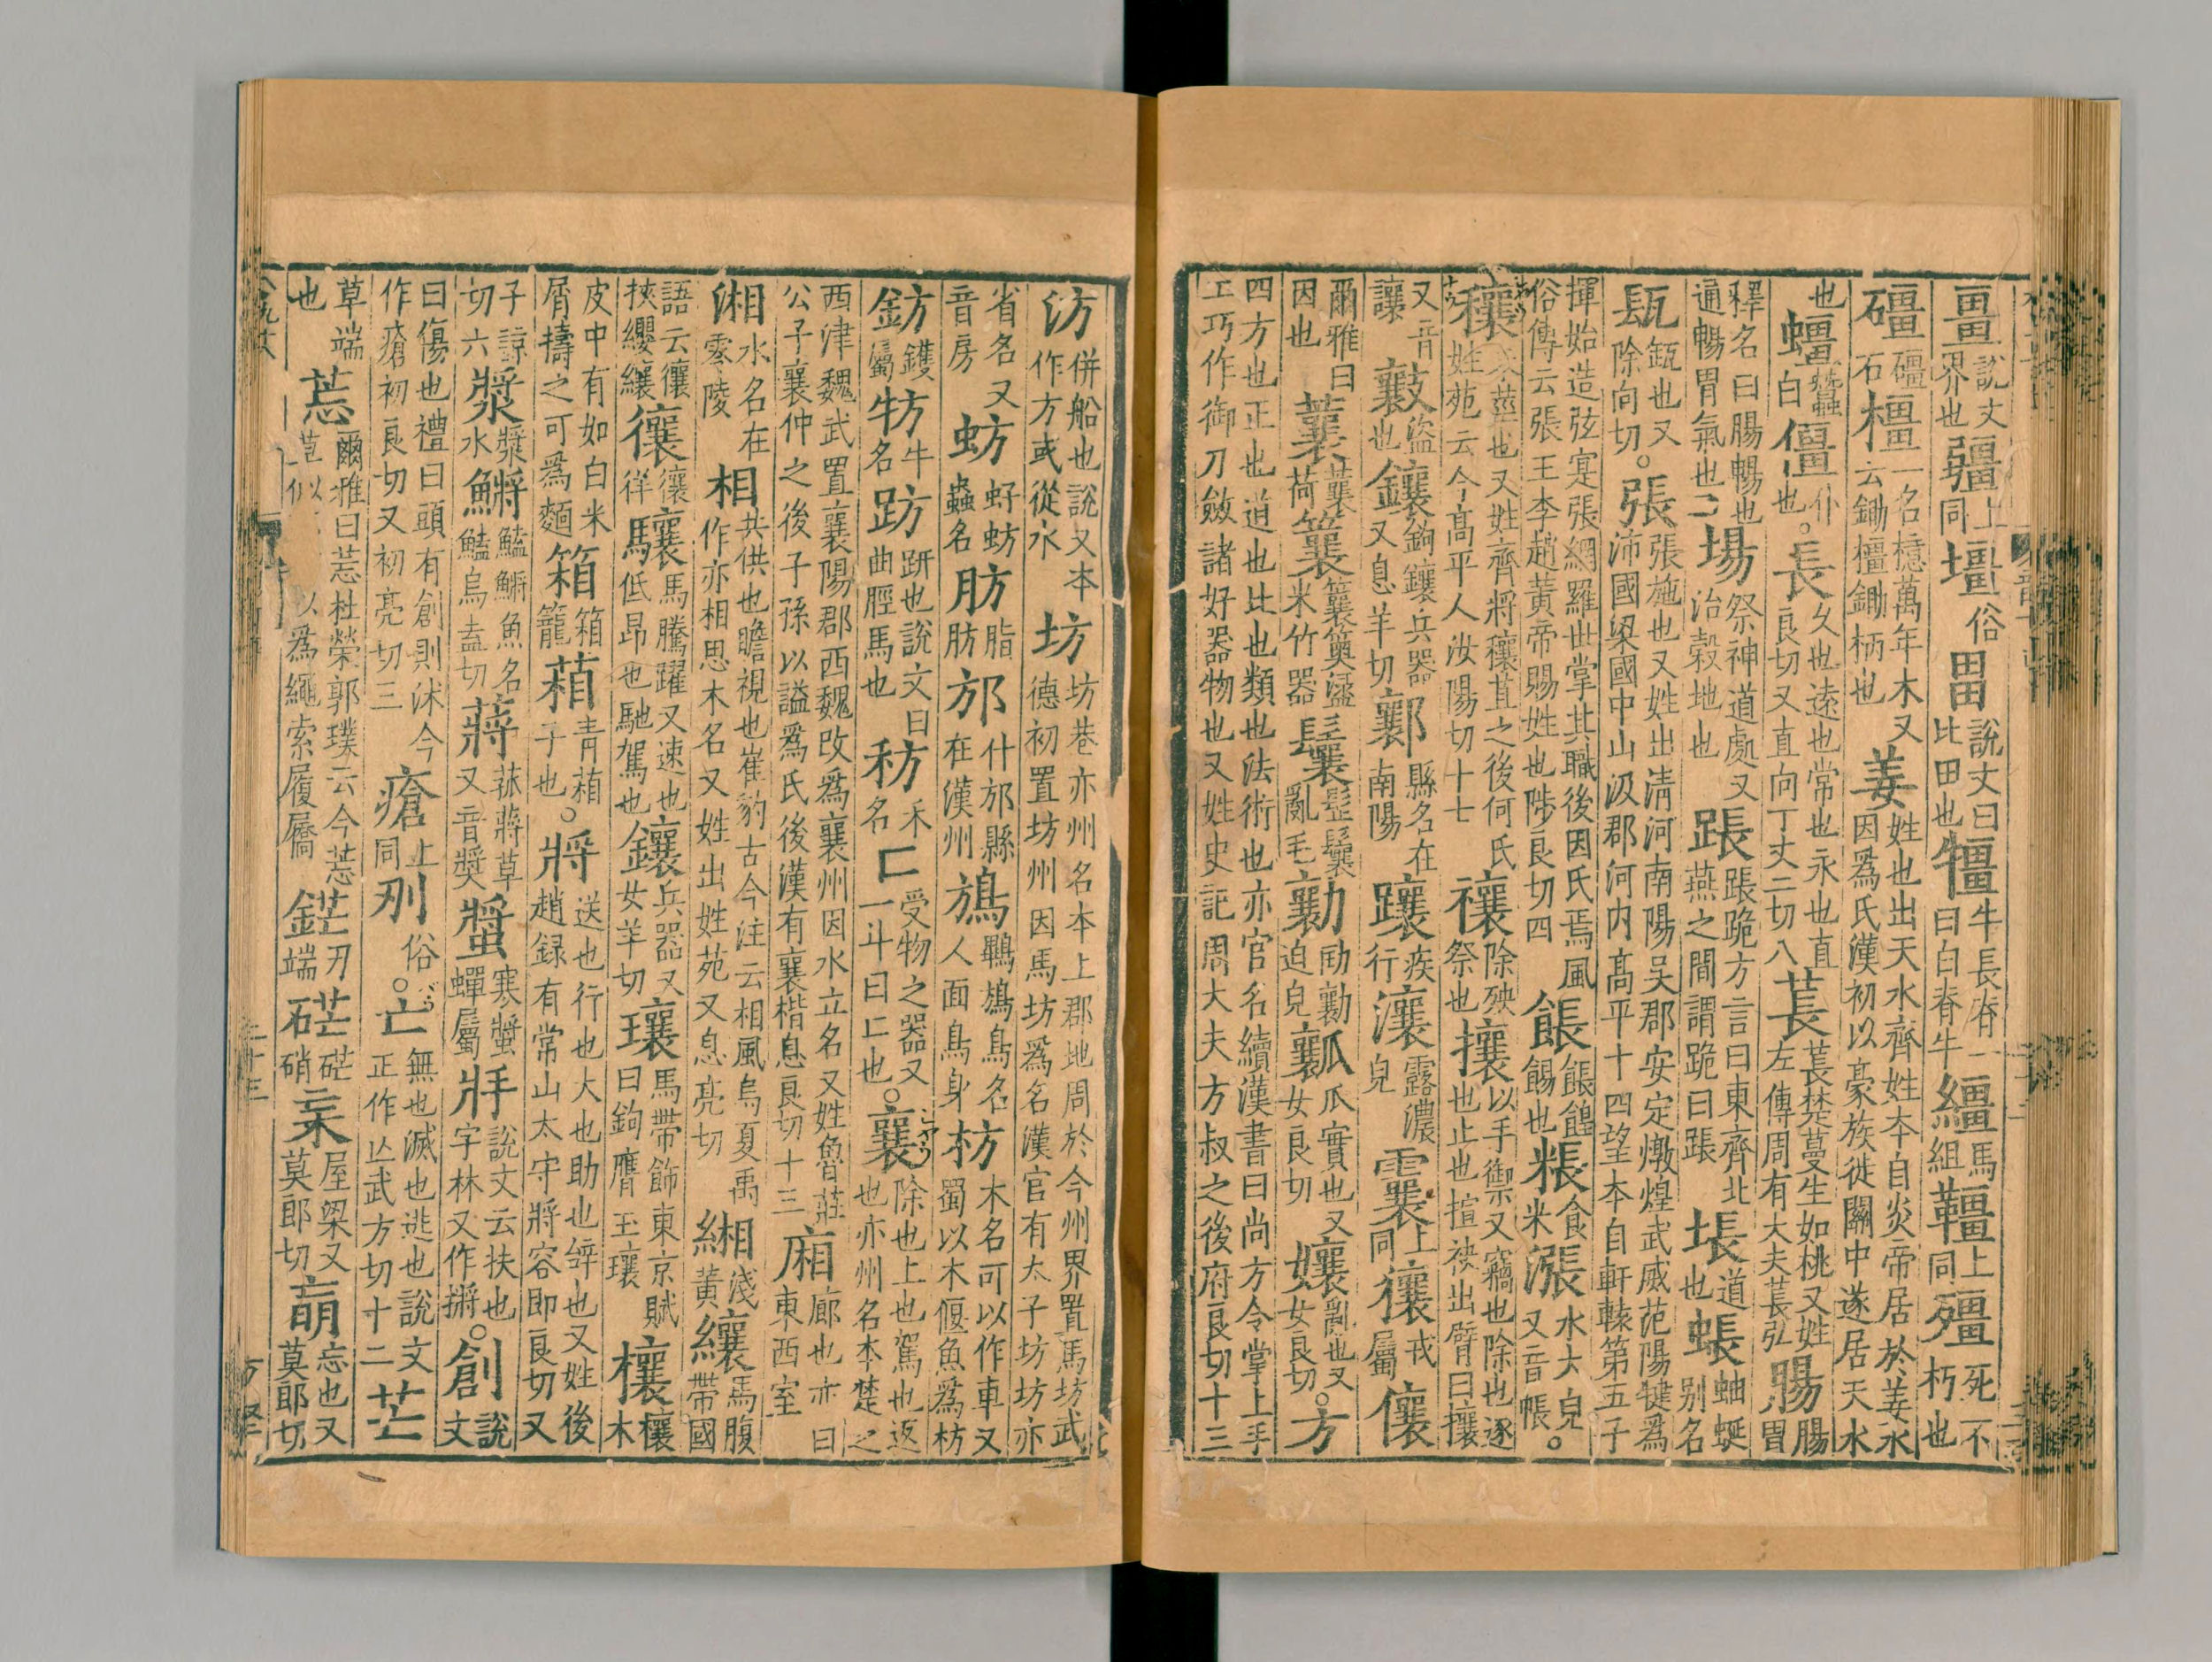 畺說文界也疆上同壃俗畕說文曰比田也犟牛長脊一曰白脊牛繮馬組韁上同殭死不朽也
礓礓石橿一名檍萬年木又云鋤橿鋤柄也姜姓也出天水齊姓本自炎帝居於姜水因爲氏漢初以豪族徙關中遂居天水
也蠶白僵仆也。長久也遠也常也永也直良切又直向丁丈二切八萇萇楚蔓生如桃又姓左傳周有大夫萇弘腸腸胃
釋名曰腸暢也通暢胃氣也場祭神道處又治穀地也踉踉跪方言曰東齊北燕之間謂跪曰踉𡌠道也蜄蚰蜒别名
瓺瓶也又除向切。張張施也又姓出清河南陽吳郡安定燉煌武威范陽犍爲沛國梁國中山汲郡河内高平十四望本自軒轅第五子
揮始造弦寔張網羅世掌其職後因氏焉風俗傳云張王李趙黄帝賜姓也陟良切四餦餦餭餳也粻食米漲水大皃又音帳。
穰禾莖也又姓齊將穰苴之後何氏姓苑云今高平人汝陽切十七禳除殃祭也攘以手御禦又竊也除也逐也止也揎袂出臂曰攘
又音讓𣀮盜也鑲鉤鑲兵器又息羊切鄴縣名在南陽躟疾行瀼露濃皃䨲上同𧟄戎屬儴
爾雅曰因也蘘蘘荷䉴䉴䉛澁米竹器鬤髼鬤亂毛勷劻勷迫皃瓤瓜實也又女良切孃亂也又女良切。方
四方也正也道也比也類也法術也亦官名續漢書曰尚方令掌上手工巧作御刀斂諸好器物也又姓史記周大夫方叔之後府良切十三
汸併船也說文本作方或從水坊坊巷亦州名本上郡地周於今州界置馬坊武德初置坊州因馬坊爲名漢官有太子坊坊亦
省名又音房蚄虸蚄蟲名肪脂肪邡什邡縣在漢州鴋鸅鴋鳥名人面鳥身枋木名可以作車又蜀以木偃魚爲枋
鈁鑊屬牥牛名趽趼也說文曰曲脛馬也䄱禾名匚受物之器又一斗曰匚也。襄除也上也駕也返也亦州名本楚之
西津魏武置襄陽郡西魏改爲襄州因水立名又姓魯莊公子襄仲之後子孫以謚爲氏後漢有襄楷息良切十三廂廊也亦曰東西室
湘水名在零陵相共供也瞻視也崔豹古今注云相風烏夏禹作亦相思木名又姓出姓苑又息亮切緗淺黄纕馬腹帶國
語云懷挾纓纕忀忀徉驤馬騰躍又速也低昂也馳駕也鑲兵器又女羊切瓖馬帶飾東京賦曰鉤膺玉瓖欀欀木
皮中有如白米屑擣之可爲麵箱箱籠葙青葙子也。將送也行也大也助也辝也又姓後趙録有常山太守將容即良切又
子諒切六漿漿水鱂䱟鱂魚名䱟烏盍切蔣菰蔣草又音奬螿寒螿蟬屬牂說文云扶也字林又作摪。創說文
曰傷也禮曰頭有創則沐今作瘡初良切又初亮切三瘡上同刅俗。亡無也滅也逃也說文正作亾武方切十二芒
草端也莣爾雅曰莣杜榮郭璞云今莣草似茅以爲繩索履屩鋩刃端硭硭硝㝑屋梁又莫郎切㡃忘也又莫郎切